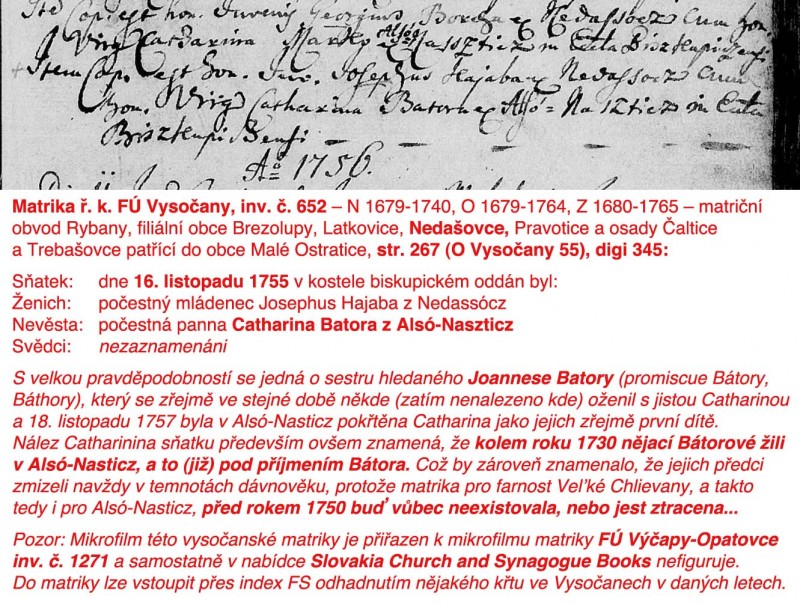 Ite Cop. est hon. Juvenis Georgius Borcha ex Nedassocz Cum hon.
Virg Catharina Marko ex Alsoo Nassticz in Eccla Bisztupiczensi
Item Cop. est hon. Juv. Josephus Hajaba ex Nedassocz Cum
hon. Virg Catharina Batora ex Alsó-Naszticz in Eccla
Bisztupi
Aō 1756.
Matrika ř. k. FÚ Vysočany, inv. č. 652 – N 1679-1740, O 1679-1764, Z 1680-1765 – matriční
obvod Rybany, filiální obce Brezolupy, Latkovice, Nedašovce, Pravotice a osady Čaltice
a Trebašovce patřící do obce Malé Ostratice, str. 267 (O Vysočany 55), digi 345:
Sňatek: dne 16. listopadu 1755 v kostele biskupickém oddán byl:
Ženich: počestný mládenec Josephus Hajaba z Nedassócz
Nevěsta: počestná panna Catharina Batora z Alsó-Naszticz
Svědci: nezaznamenáni
S velkou pravděpodobností se jedná o sestru hledaného Joannese Batory (promiscue Bátory,
Báthory), který se zřejmě ve stejné době někde (zatím nenalezeno kde) oženil s jistou Catharinou
a 18. listopadu 1757 byla v Alsó-Nasticz pokřtěna Catharina jako jejich zřejmě první dítě.
Nález Catharinina sňatku především ovšem znamená, že kolem roku 1730 nějací Bátorové žili
v Alsó-Nasticz, a to (již) pod příjmením Bátora. Což by zároveň znamenalo, že jejich předci
zmizeli navždy v temnotách dávnověku, protože matrika pro farnost Veľké Chlievany, a takto
tedy i pro Alsó-Nasticz, před rokem 1750 buď vůbec neexistovala, nebo jest ztracena...
Pozor: Mikrofilm této vysočanské matriky je přiřazen k mikrofilmu matriky FÚ Výčapy-Opatovce
inv. č. 1271 a samostatně v nabídce Slovakia Church and Synagogue Books nefiguruje.
Do matriky lze vstoupit přes index FS odhadnutím nějakého křtu ve Vysočanech v daných letech.